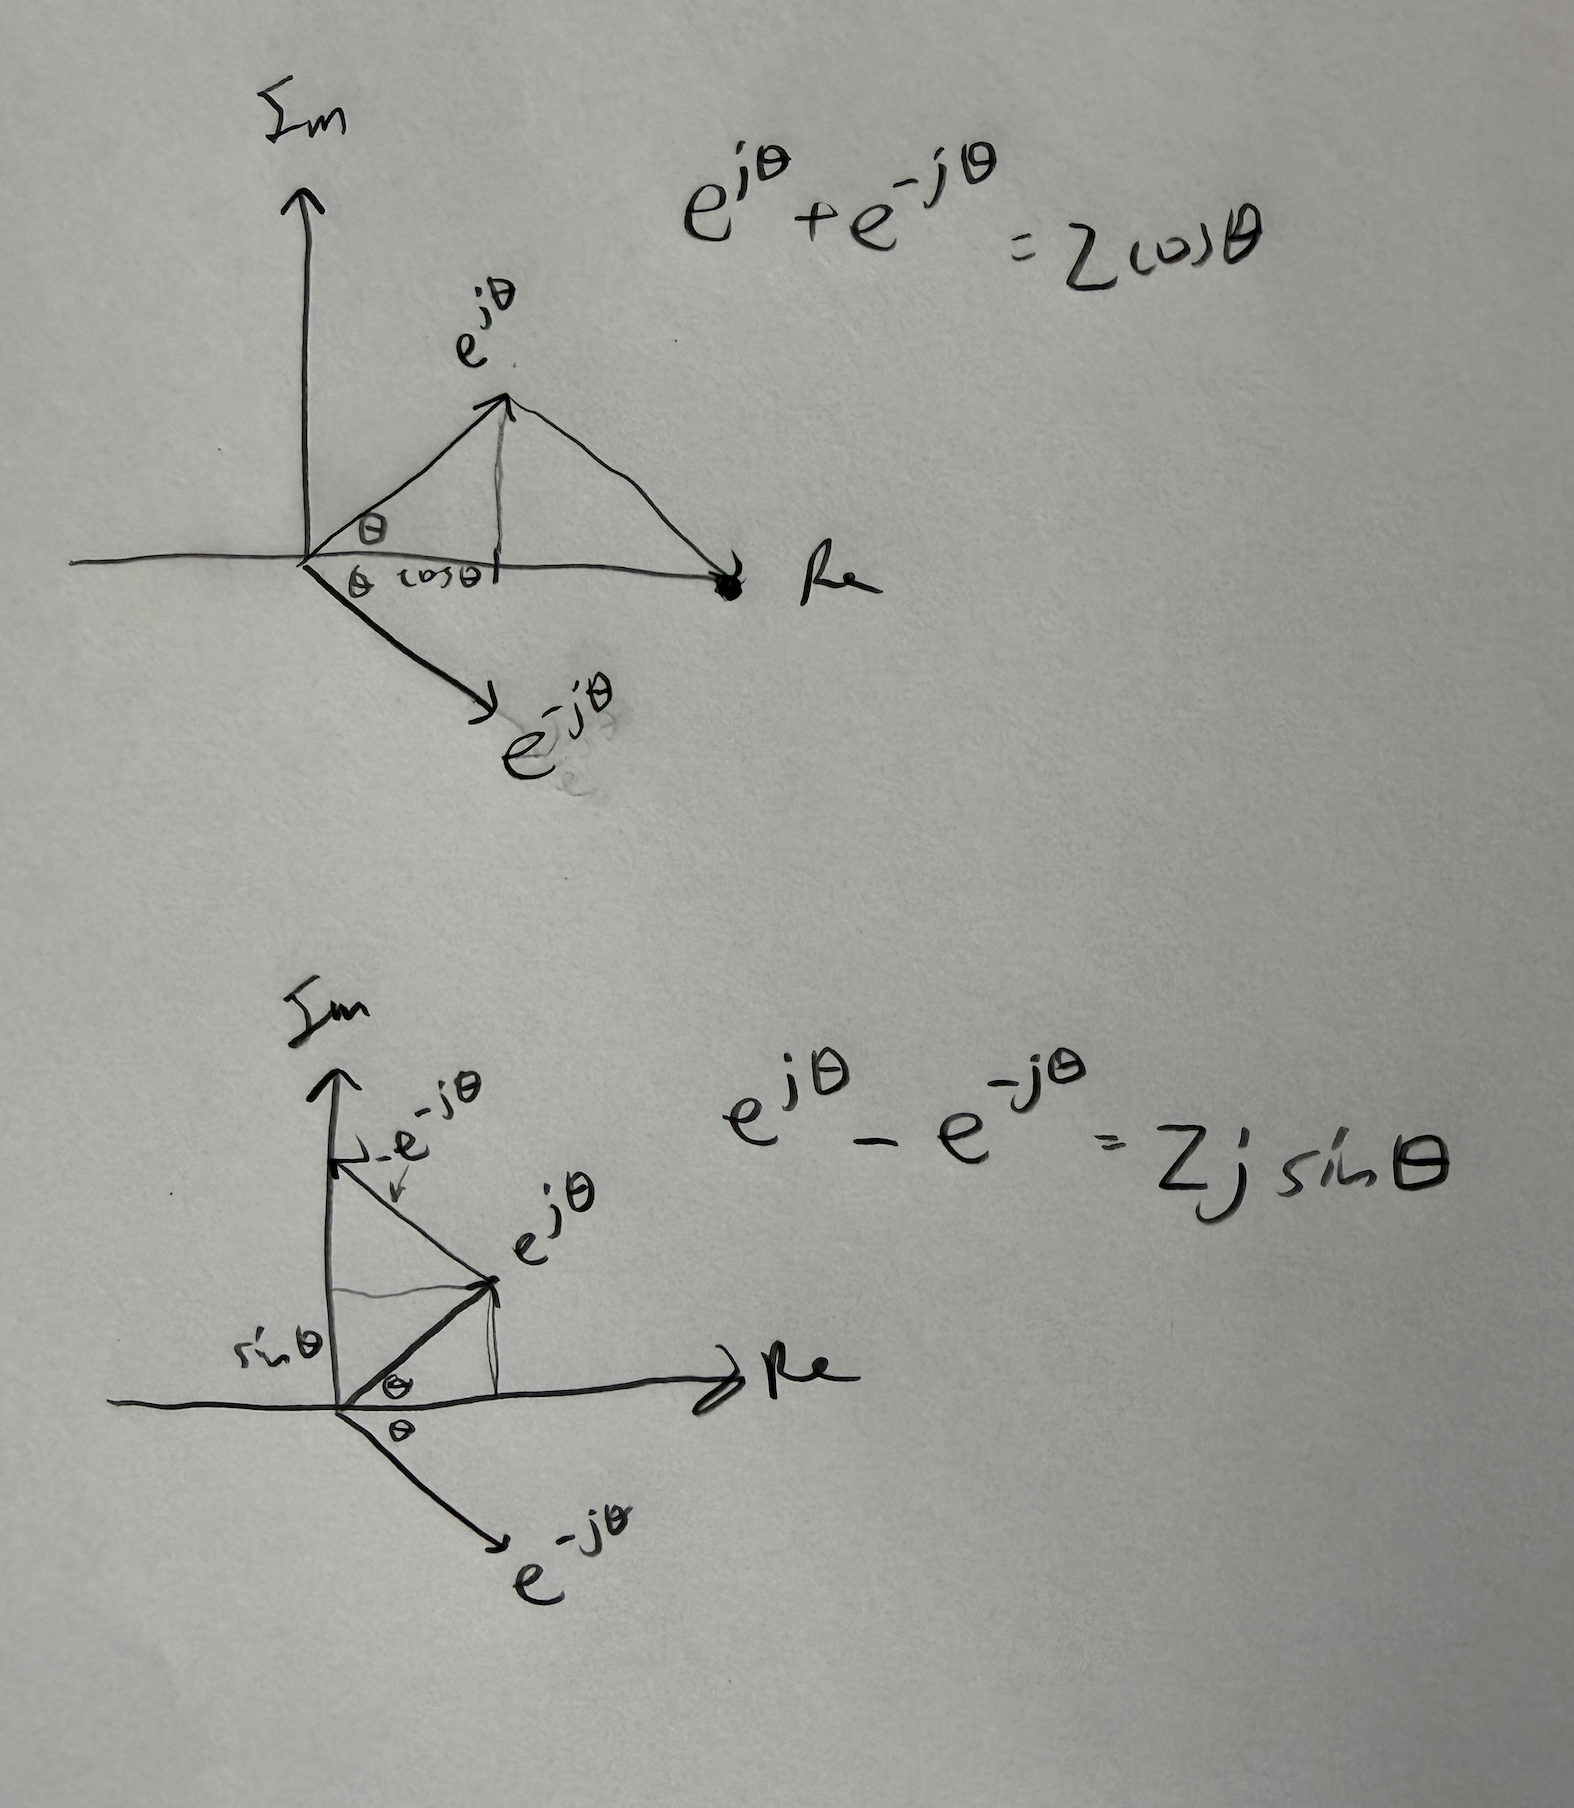 Im
e^{jθ} + e^{-jθ} = 2 cosθ
e^{jθ}
θ
θ cosθ
Re
e^{-jθ}
Im
-e^{-jθ}
e^{jθ} - e^{-jθ} = 2j sinθ
e^{jθ}
sinθ
θ
Re
θ
e^{-jθ}